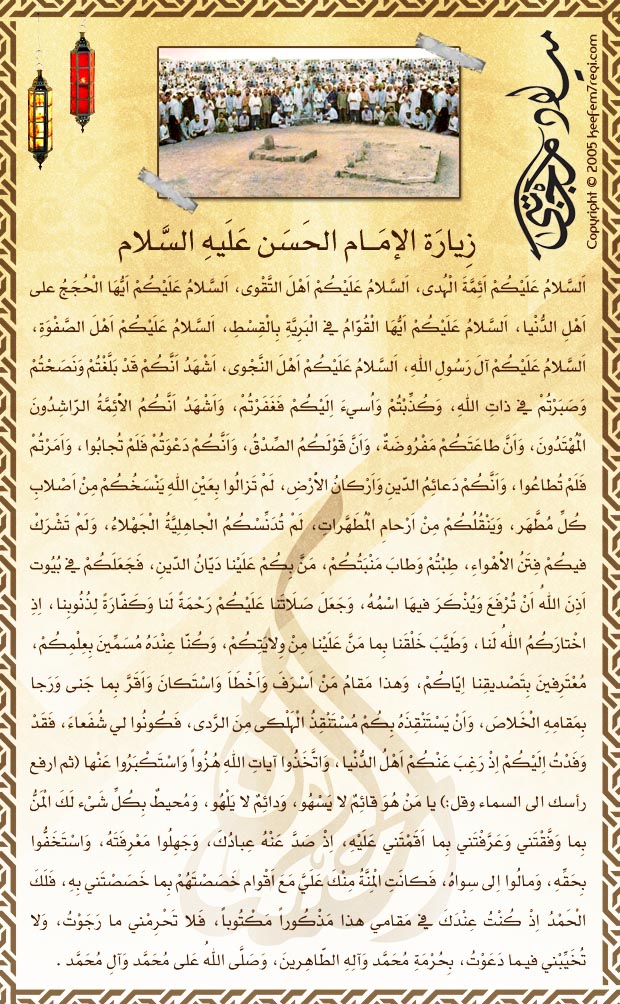 Copyright © 2005 keefem7reqi.com
زِيارَة الإمَـام الحَسَن عَلَيهِ السَّلام
اَلسَّلامُ عَلَيْكُمْ اَئِمَّةَ الْهُدى، اَلسَّلامُ عَلَيْكُمْ اَهْلَ التَّقْوى، اَلسَّلامُ عَلَيْكُمْ اَيُّهَا الْحُجَجُ على
اَهْلِ الدُّنْيا، اَلسَّلامُ عَلَيْكُمْ اَيُّهَا الْقُوّامُ في الْبَرِيَّةِ بِالْقِسْطِ، اَلسَّلامُ عَلَيْكُمْ اَهْلَ الصَّفْوَةِ،
اَلسَّلامُ عَلَيْكُمْ آلَ رَسُولِ اللهِ، اَلسَّلامُ عَلَيْكُمْ اَهْلَ النَّجْوى، اَشْهَدُ اَنَّكُمْ قَدْ بَلَّغْتُمْ وَنَصَحْتُمْ
وَصَبَرْتُمْ في ذاتِ اللهِ، وَكُذِّبْتُمْ وَاُسيءَ اِلَيْكُمْ فَغَفَرْتُمْ، وَاَشْهَدُ اَنَّكُمُ الاَْئِمَّةُ الرّاشِدُونَ
الْمُهْتَدُونَ، وَاَنَّ طاعَتَكُمْ مَفْرُوضَةٌ، وَاَنَّ قَوْلَكُمُ الصِّدْقُ، وَاَنَّكُمْ دَعَوْتُمْ فَلَمْ تُجابُوا، وَاَمَرْتُمْ
فَلَمْ تُطاعُوا، وَاَنَّكُمْ دَعائِمُ الدّينِ وَاَرْكانُ الاَْرْضِ، لَمْ تَزالُوا بِعَيْنِ اللهِ يَنْسَخُكُمْ مِنْ اَصْلابِ
كُلِّ مُطَهَّر، وَيَنْقُلُكُمْ مِنْ اَرْحامِ الْمُطَهَّراتِ، لَمْ تُدَنِّسْكُمُ الْجاهِلِيَّةُ الْجَهْلاءُ، وَلَمْ تَشْرَكْ
فيكُمْ فِتَنُ الاَْهْواءِ، طِبْتُمْ وَطابَ مَنْبَتُكُمْ، مَنَّ بِكُمْ عَلَيْنا دَيّانُ الدّينِ، فَجَعَلَكُمْ في بُيُوت
اَذِنَ اللهُ اَنْ تُرْفَعَ وَيُذْكَرَ فيهَا اسْمُهُ، وَجَعَلَ صَلاتَنا عَلَيْكُمْ رَحْمَةً لَنا وَكَفّارَةً لِذُنُوبِنا، اِذِ
اخْتارَكُمُ اللهُ لَنا، وَطَيَّبَ خَلْقَنا بِما مَنَّ عَلَيْنا مِنْ وِلايَتِكُمْ، وَكُنّا عِنْدَهُ مُسَمِّينَ بِعِلْمِكُمْ،
مُعْتَرِفينَ بِتَصْديقِنا اِيّاكُمْ، وَهذا مَقامُ مَنْ اَسْرَفَ وَاَخْطَاَ وَاسْتَكانَ وَاَقَرَّ بِما جَنى وَرَجا
بِمَقامِهِ الْخَلاصَ، وَاَنْ يَسْتَنْقِذَهُ بِكُمْ مُسْتَنْقِذُ الْهَلْكى مِنَ الرَّدى، فَكُونُوا لي شُفَعاءَ، فَقَدْ
وَفَدْتُ اِلَيْكُمْ اِذْ رَغِبَ عَنْكُمْ اَهْلُ الدُّنْيا، وَاتَّخَذُوا آياتِ اللهِ هُزُواً وَاسْتَكْبَرُوا عَنْها (ثم ارفع
رأسك الى السماء وقل:) يا مَنْ هُوَ قائِمٌ لا يَسْهُو، وَدائِمٌ لا يَلْهُو، وَمُحيطٌ بِكُلِّ شَىْء لَكَ الْمَنُّ
بِما وَفَّقْتَني وَعَرَّفْتَني بِما اَقَمْتَني عَلَيْهِ، اِذْ صَدَّ عَنْهُ عِبادُكَ، وَجَهِلُوا مَعْرِفَتَهُ، وَاسْتَخَفُّوا
بِحَقِّهِ، وَمالُوا اِلى سِواهُ، فَكانَتِ الْمِنَّةُ مِنْكَ عَلَيَّ مَعَ اَقْوام خَصَصْتَهُمْ بِما خَصَصْتَني بِهِ، فَلَكَ
الْحَمْدُ اِذْ كُنْتُ عِنْدَكَ في مَقامي هذا مَذْكُوراً مَكْتُوباً، فَلا تَحْرِمْني ما رَجَوْتُ، وَلا
تُخَيِّبْني فيما دَعَوْتُ، بِحُرْمَةِ مُحَمَّد وَآلِهِ الطّاهِرينَ، وَصَلَّى اللهُ عَلى مُحَمَّد وَآلِ مُحَمَّد .